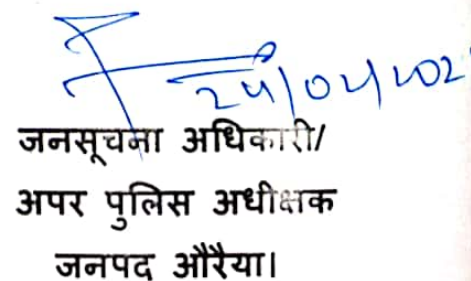 24/04/202
जनसूचना अधिकारी/
अपर पुलिस अधीक्षक
जनपद औरैया।